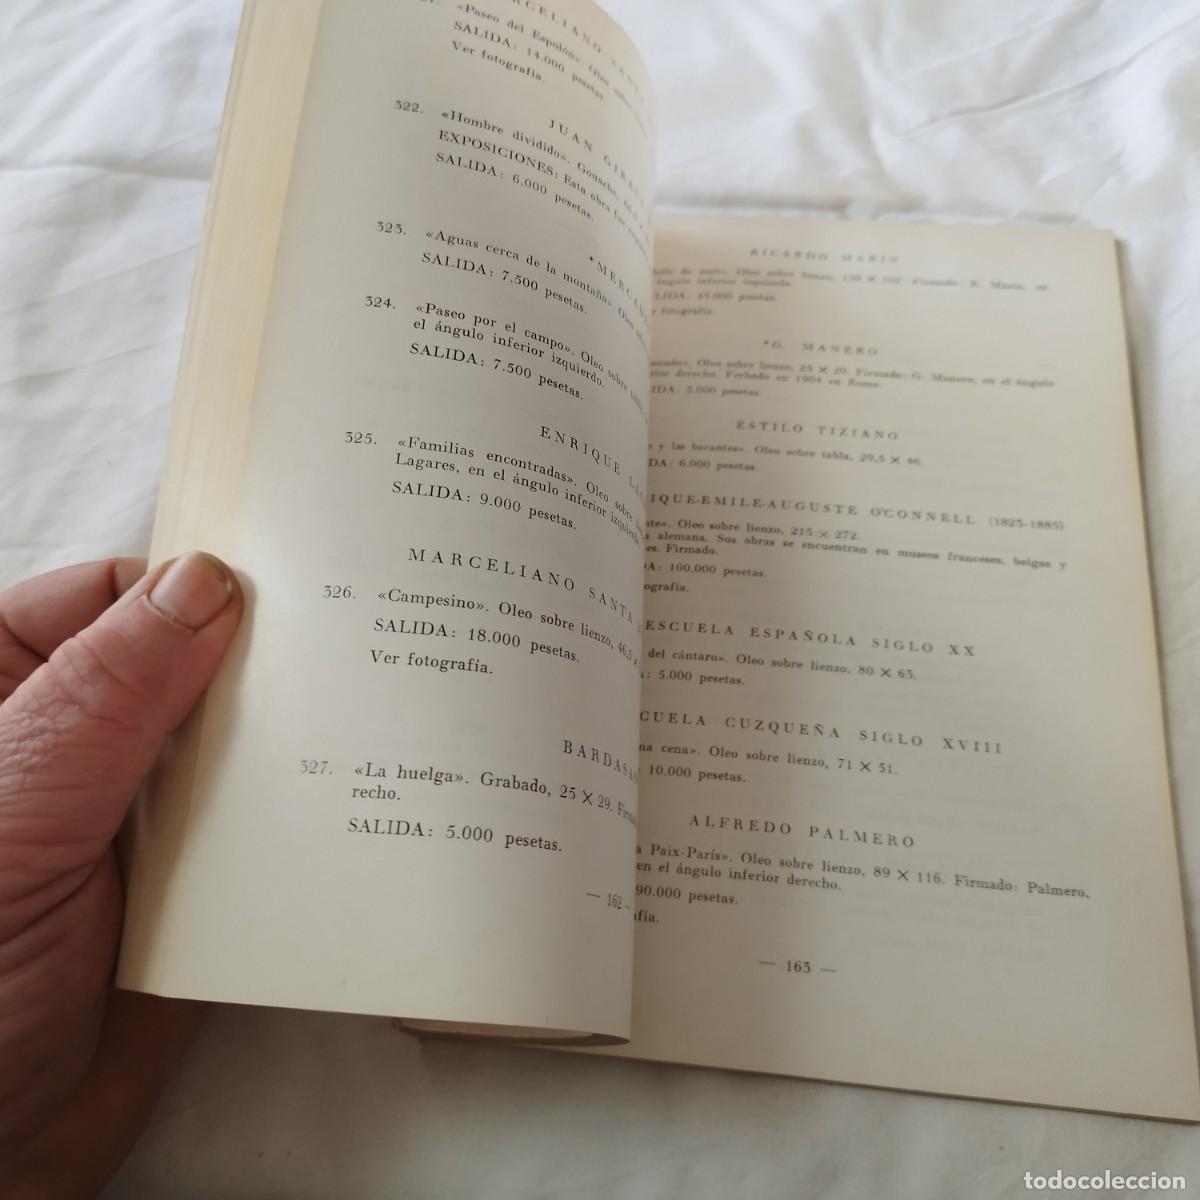 «Paseo del Espolón». Oleo
SALIDA: 14.000 pesetas.
Ver fotografía.
JUAN
322. «Hombre dividido». Gouache,
EXPOSICIONES: Esta obra fue
SALIDA: 6.000 pesetas.
323. «Aguas cerca de la montaña». Oleo
SALIDA: 7.500 pesetas.
324. «Paseo por el campo». Oleo sobre
el ángulo inferior izquierdo.
SALIDA: 7.500 pesetas.
ENRIQUE
325. «Familias encontradas». Oleo sobre
Lagares, en el ángulo inferior
SALIDA: 9.000 pesetas.
MARCELIANO SANTA
326. «Campesino». Oleo sobre lienzo, 46,5 ×
SALIDA: 18.000 pesetas.
Ver fotografía.
327. «La huelga». Grabado, 25 × 29.
recho.
SALIDA: 5.000 pesetas.
— 162 —
RICARDO MARIN
Oleo sobre lienzo, Firmado: R. Marín, en
ángulo inferior izquierdo.
45.000 pesetas.
fotografía.
*G. MANERO
Oleo sobre lienzo, 25 × 20. Firmado: G. Manero, en el ángulo
derecho. Fechado en 1904 en Roma.
5.000 pesetas.
ESTILO TIZIANO
y las bacantes». Oleo sobre tabla, 29,5 × 46.
6.000 pesetas.
-EMILE-AUGUSTE O'CONNELL (1823-1885)
Oleo sobre lienzo, 215 × 272.
alemana. Sus obras se encuentran en museos franceses, belgas y
Firmado.
100.000 pesetas.
ESCUELA ESPAÑOLA SIGLO XX
del cántaro». Oleo sobre lienzo, 80 × 63.
5.000 pesetas.
CUZQUEÑA SIGLO XVIII
cena». Oleo sobre lienzo, 71 × 51.
10.000 pesetas.
ALFREDO PALMERO
Paix-París». Oleo sobre lienzo, 89 × 116. Firmado: Palmero,
en el ángulo inferior derecho.
90.000 pesetas.
— 163 —
todocoleccion